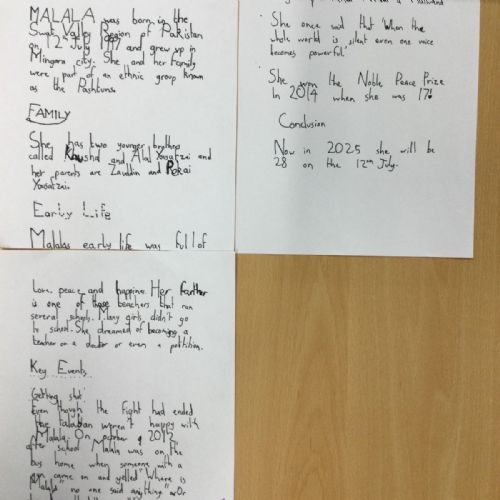 MALALA was born in the
Swat Valley Region of Pakistan
on 12th July 1997 and grew up in
Mingora city. She and her family
were part of an ethnic group known
as the Pashtuns.
FAMILY
She has two younger brothers
called Khushal and Atal Yousafzai and
her parents are Ziauddin and Pekai
Yousafzai.
Early Life
Malalas early life was full of
love, peace and happine. Her farther
is one of those teachers that ran
several schools. Many girls didn't go
to school. She dreamed of becoming a
teacher or a doctor or even a polittion.
Key Events
'Getting shot'
Even though the fight had ended
the taliban weren't happy with
Malala. On october 9 2012
after school Malala was on the
bus home when someone with a
gun came on and yelled "Where is
Malala" no one said anything "
She once said that 'When the
whole world is silent even one voice
becomes powerful'
She won the Noble Peace Prize
In 2014 when she was 17!
Conclusion
Now in 2025 she will be
28 on the 12th July.